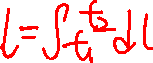 l=∫_{t_1}^{t_2} dl